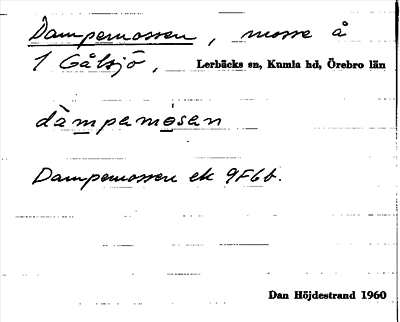 Dampemossen, mosse å
1 Gålsjö, Lerbäcks sn, Kumla hd, Örebro län
dàmpemósen
Dampemossen ek 9F6b.
Dan Höjdestrand 1960